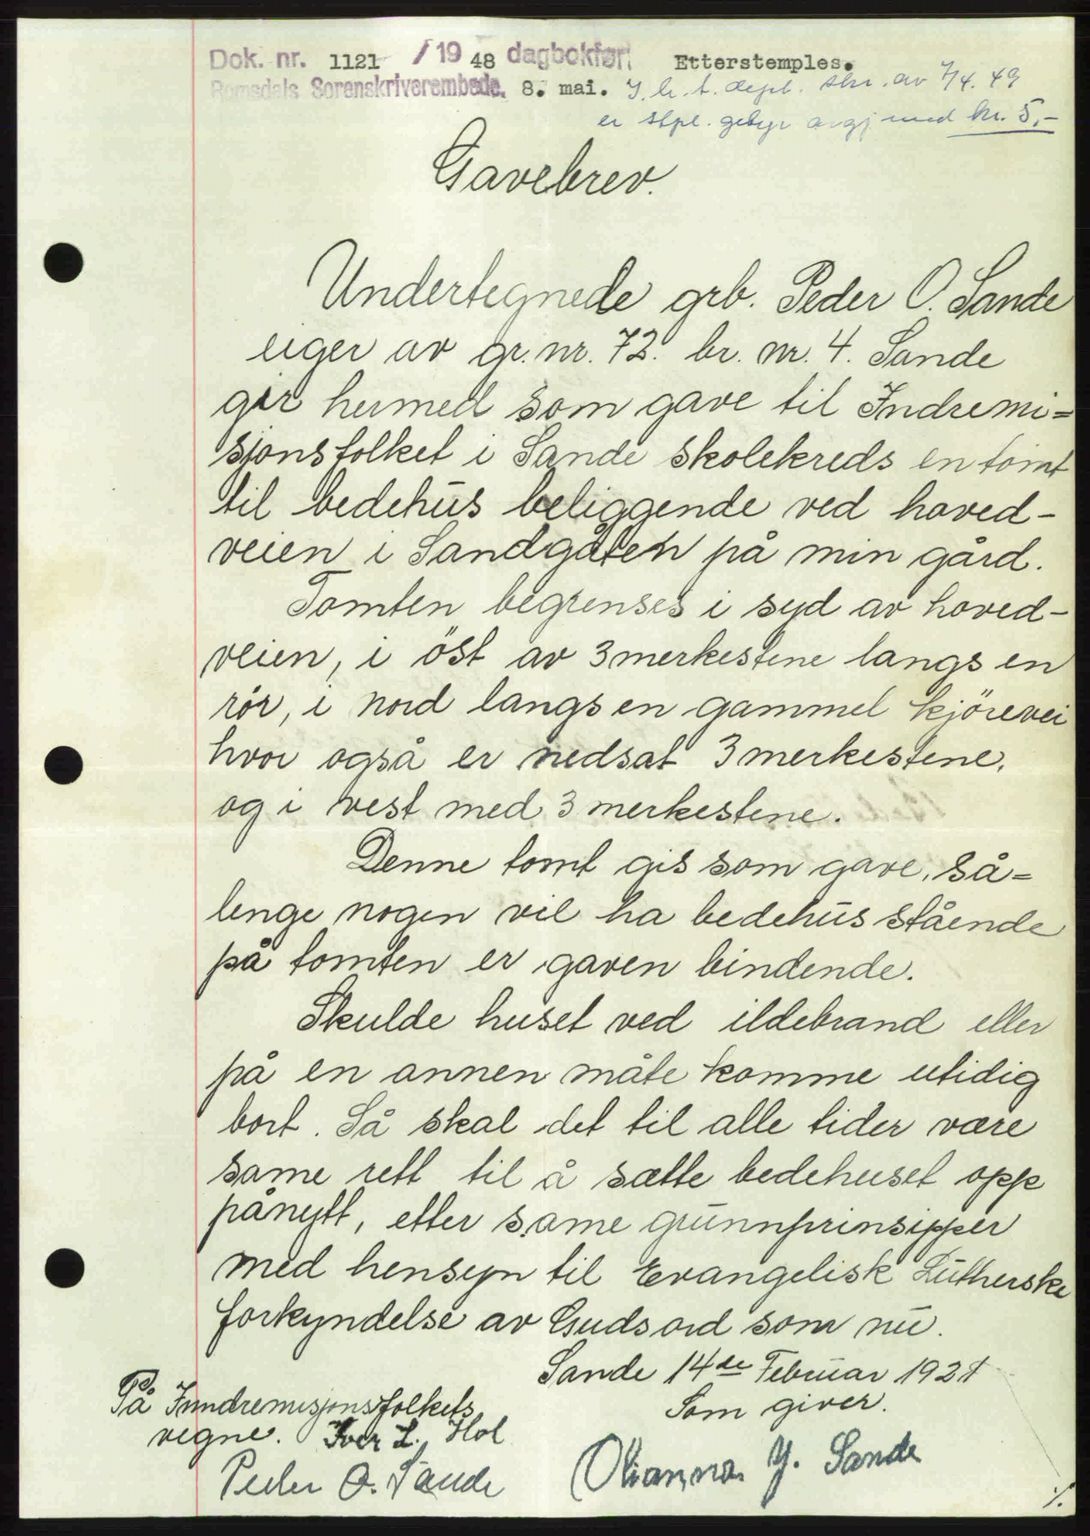 Dok. nr. 1121 /19 48 dagbokført Etterstemples.
Romsdals Sorenskriverembede. 8. mai. I h. t. dept. skr. av 7/4. 49
er stpl. gebyr avgj med kr. 5,-
Gavebrev.
Undertegnede grb. Peder O. Sande
eiger av gr. nr. 72. br. nr. 4. Sande
gir hermed som gave til Indremi=
sjonsfolket i Sande skolekreds en tomt
til bedehus beliggende ved hoved-
veien i Sandgåten på min gård.
Tomten begrenses i syd av hoved-
veien, i öst av 3 merkestene langs en
rör, i nord langs en gammel kjörevei
hvor også er nedsat 3 merkestene,
og i vest med 3 merkestene.
Denne tomt gis som gave, så=
lenge nogen vil ha bedehus stående
på tomten er gaven bindende.
Skulde huset ved ildebrand eller
på en annen måte komme utidig
bort. Så skal det til alle tider være
same rett til å sætte bedehuset opp
pånytt, etter same grunnprinsipper
med hensyn til Evangelisk Lutherske
forkyndelse av Guds ord som nu.
Sande 14de Februar 1931
Som giver.
På Inndremisjonsfolkets
vegne. Iver L. Hol
Peder O. Sande Olianna J. Sande
%.